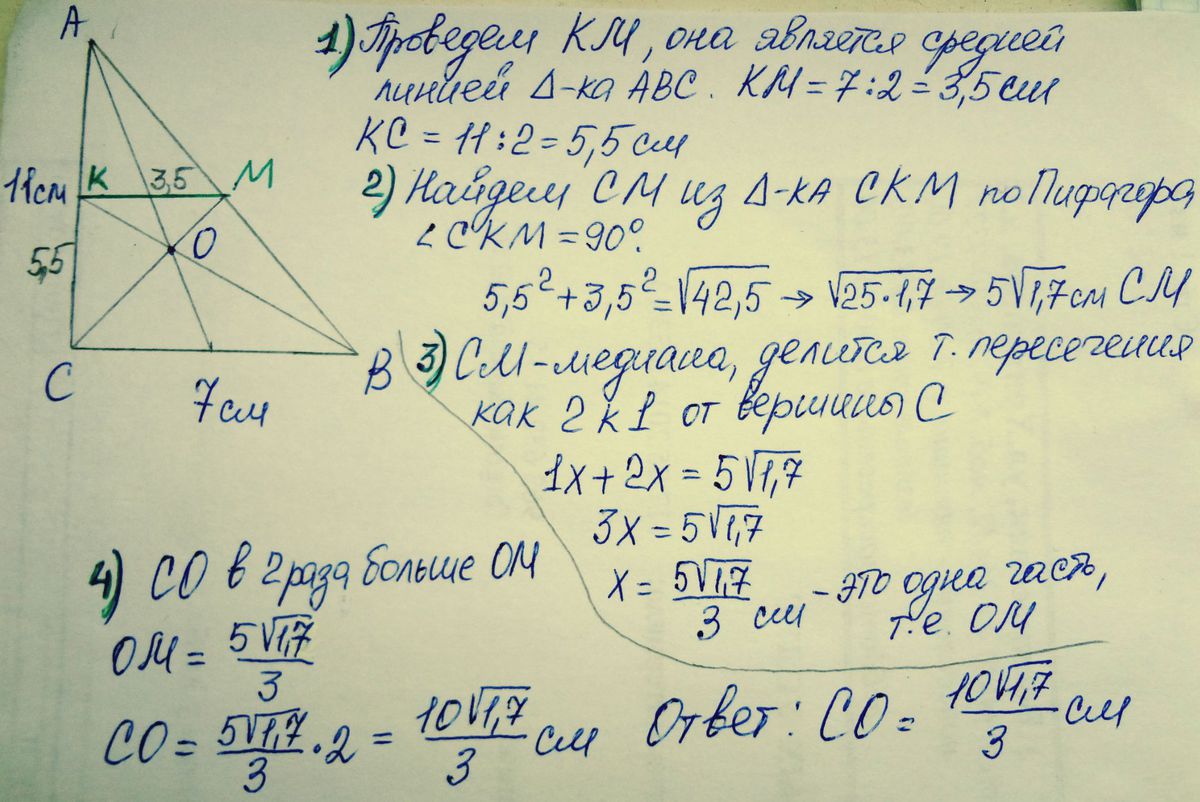 A
11см
K
3,5
M
O
5,5
C
B
7см
1) Проведем КМ, она является средней
линией Δ-ка АВС. КМ = 7:2 = 3,5см
КС = 11:2 = 5,5 см
2) Найдем СМ из Δ-ка СКМ по Пифагора,
∠СКМ = 90°.
5,5² + 3,5² = √42,5 → √25·1,7 → 5√1,7 см СМ
3) СМ-медиана, делится т. пересечения
как 2 к 1 от вершины С
1x + 2x = 5√1,7
3x = 5√1,7
x = 5√1,7/3 см - это одна часть,
т.е. ОМ
4) СО в 2 раза больше ОМ
ОМ = 5√1,7/3
СО = 5√1,7/3 · 2 = 10√1,7/3 см
Ответ: СО = 10√1,7/3 см